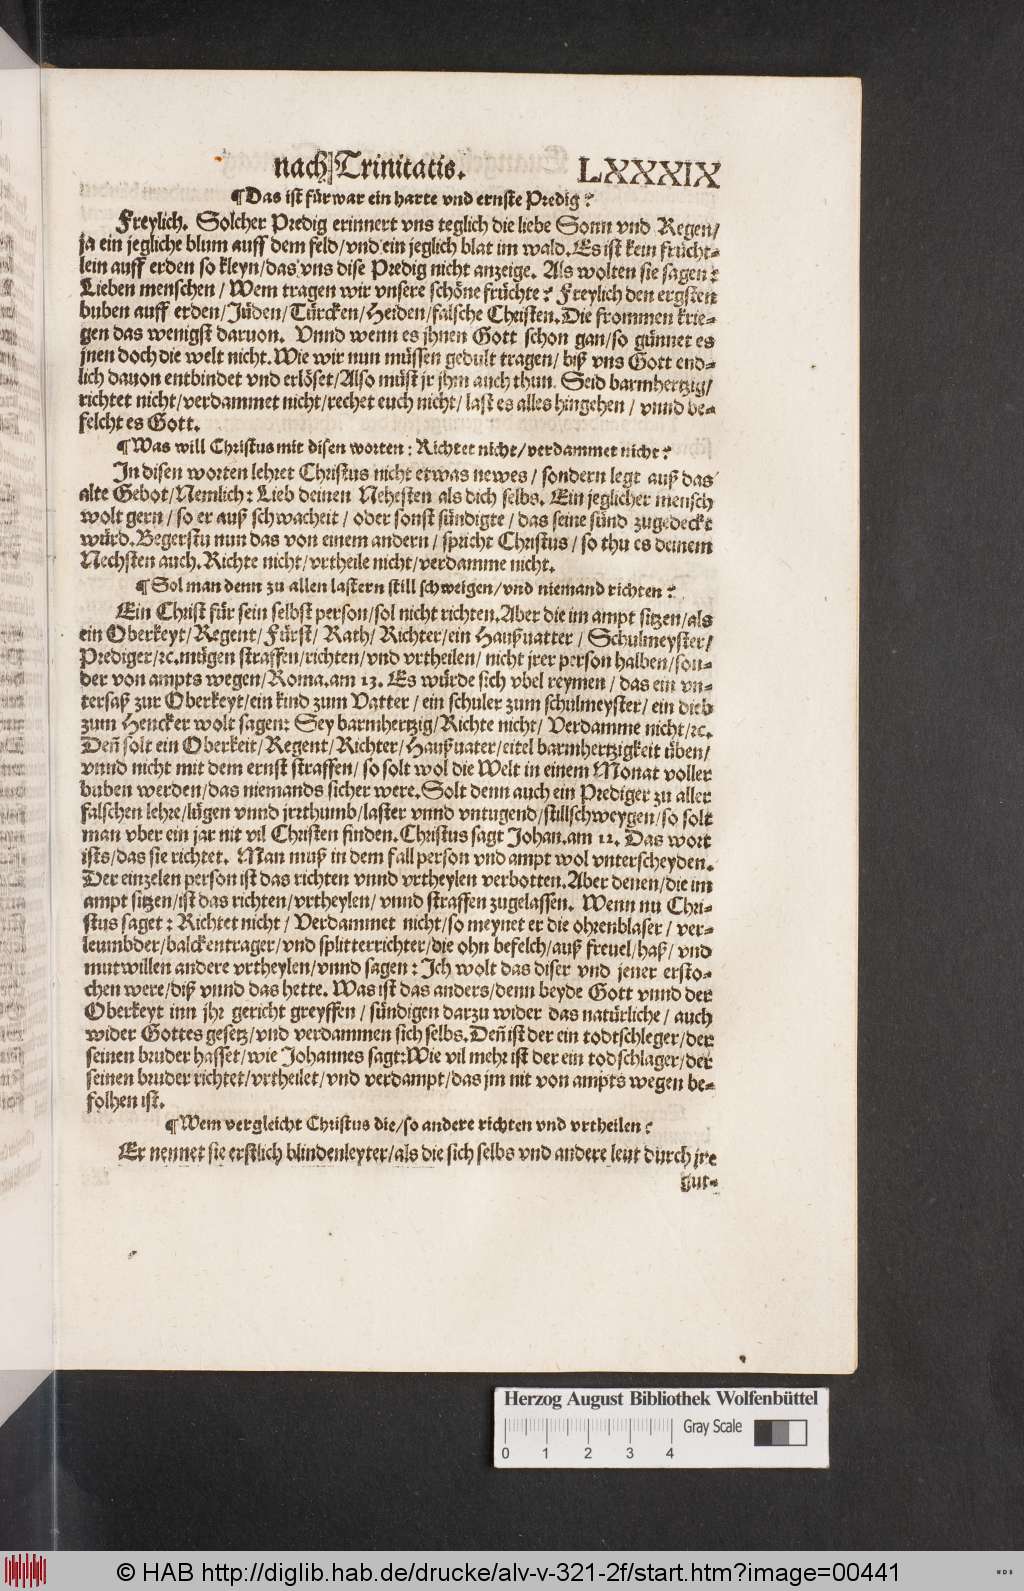 nach Trinitatis. LXXXIX
¶Das ist fürwar ein harte vnd ernste Predig?
Freylich. Solcher Predig erinnert vns teglich die liebe Sonn vnd Regen/
ja ein jegliche blum auff dem feld/vnd ein jeglich blat im wald. Es ist kein frücht-
lein auff erden so kleyn/das vns dise Predig nicht anzeige. Als wolten sie sagen?
Lieben menschen/ Wem tragen wir vnsere schöne früchte? Freylich den ergsten
buben auff erden/Jüden/Türcken/Heiden/falsche Christen. Die frommen krie-
gen das wenigst daruon. Vnnd wenn es jhnen Gott schon gan/so günnet es
jnen doch die welt nicht. Wie wir nun müssen gedult tragen/ biß vns Gott end-
lich dauon entbindet vnd erlöset/Also müst jr jhm auch thun. Seid barmhertzig/
richtet nicht/verdammet nicht/rechet euch nicht/ last es alles hingehen/ vnnd be-
felcht es Gott.
¶Was will Christus mit disen worten: Richtet nicht/verdammet nicht?
In disen worten lehret Christus nicht etwas newes/ sondern legt auß das
alte Gebot/Nemlich: Lieb deinen Nehesten als dich selbs. Ein jeglicher mensch
wolt gern/ so er auß schwacheit/ oder sonst sündigte/ das seine sünd zugedeckt
würd. Begerstu nun das von einem andern/ spricht Christus/ so thu es deinem
Nechsten auch. Richte nicht/vrtheile nicht/verdamme nicht.
¶Sol man denn zu allen lastern still schweigen/vnd niemand richten?
Ein Christ für sein selbst person/sol nicht richten. Aber die im ampt sitzen/als
ein Oberkeyt/Regent/Fürst/ Rath/ Richter/ein Haußuatter/ Schulmeyster/
Prediger/ꝛc. mügen straffen/richten/vnd vrtheilen/ nicht jrer person halben/son-
der von ampts wegen/Roma. am 13. Es würde sich vbel reymen/ das ein vn-
tersaß zur Oberkeyt/ein kind zum Vatter/ ein schuler zum schulmeyster/ ein dieb
zum Hencker wolt sagen: Sey barmhertzig/Richte nicht/ Verdamme nicht/ꝛc.
Deñ solt ein Oberkeit/Regent/Richter/Haußuater/eitel barmhertzigkeit üben/
vnnd nicht mit dem ernst straffen/ so solt wol die Welt in einem Monat voller
buben werden/das niemands sicher were. Solt denn auch ein Prediger zu aller
falschen lehre/lügen vnnd jrrthumb/laster vnnd vntugend/stillschweygen/so solt
man vber ein jar nit vil Christen finden. Christus sagt Johan. am 12. Das wort
ists/das sie richtet. Man muß in dem fall person vnd ampt wol vnterscheyden.
Der einzelen person ist das richten vnnd vrtheylen verbotten. Aber denen/die im
ampt sitzen/ist das richten/vrtheylen/ vnnd straffen zugelassen. Wenn nu Chri-
stus saget: Richtet nicht/ Verdammet nicht/so meynet er die ohrenblaser/ ver-
leumbder/balckentrager/vnd splitterrichter/die ohn befelch/auß freuel/haß/ vnd
mutwillen andere vrtheylen/vnnd sagen: Ich wolt das diser vnd jener ersto-
chen were/diß vnnd das hette. Was ist das anders/denn beyde Gott vnnd der
Oberkeyt inn jhr gericht greyffen/ sündigen darzu wider das natürliche/ auch
wider Gottes gesetz/vnd verdammen sich selbs. Deñ ist der ein todtschleger/der
seinen bruder hasset/wie Johannes sagt: Wie vil mehr ist der ein todschlager/der
seinen bruder richtet/vrtheilet/vnd verdampt/das jm nit von ampts wegen be-
folhen ist.
¶Wem vergleicht Christus die/so andere richten vnd vrtheilen?
Er nennet sie erstlich blindenleyter/als die sich selbs vnd andere leut durch jre
gut-
Herzog August Bibliothek Wolfenbüttel
Gray Scale
0 1 2 3 4
© HAB http://diglib.hab.de/drucke/alv-v-321-2f/start.htm?image=00441